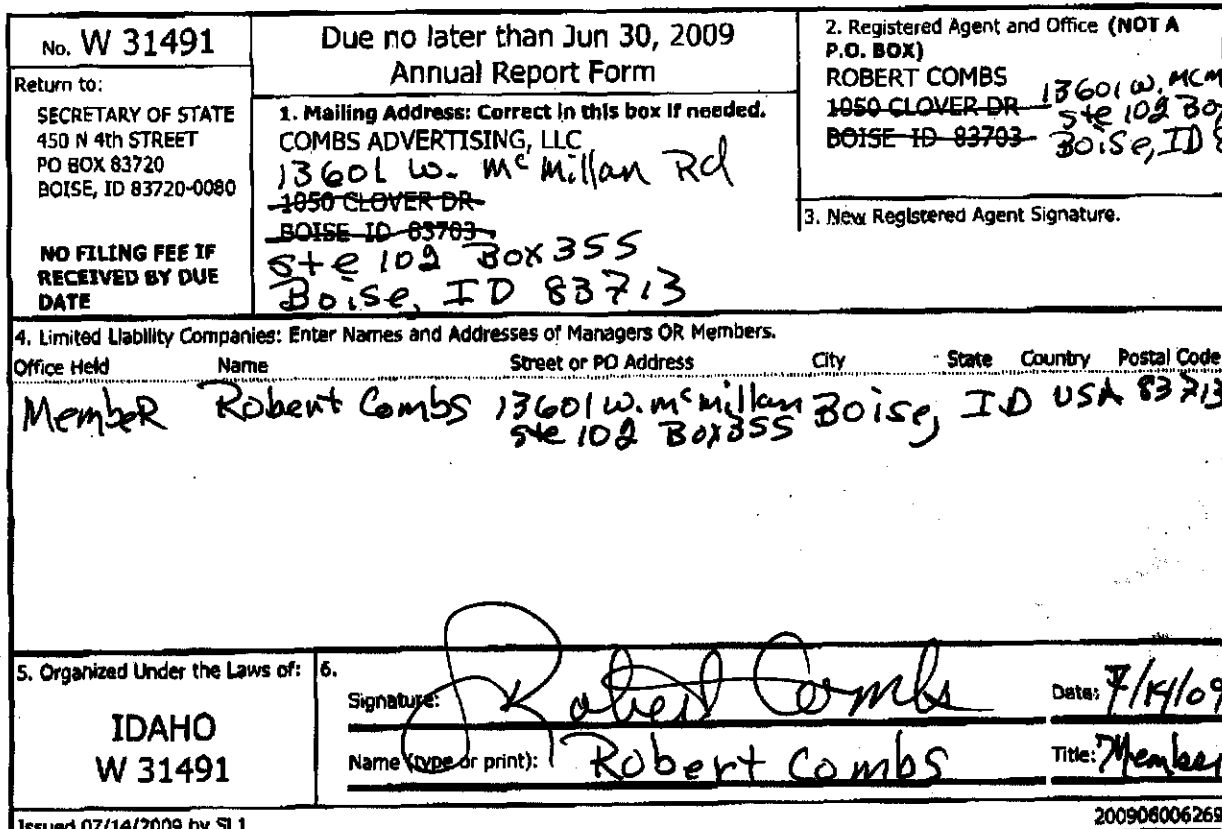 No. W 31491
Return to:
SECRETARY OF STATE
450 N 4th STREET
PO BOX 83720
BOISE, ID 83720-0080
NO FILING FEE IF
RECEIVED BY DUE
DATE
Due no later than Jun 30, 2009
Annual Report Form
1. Mailing Address: Correct in this box if needed.
COMBS ADVERTISING, LLC
13601 W. McMillan Rd
1050 CLOVER DR
BOISE ID 83703
Ste 102 Box 355
Boise, ID 83713
2. Registered Agent and Office (NOT A
P.O. BOX)
ROBERT COMBS
1050 CLOVER DR
BOISE ID 83703
13601 W. MCM
Ste 102 Bo
Boise, ID 8
3. New Registered Agent Signature.
4. Limited Liability Companies: Enter Names and Addresses of Managers OR Members.
Office Held Name Street or PO Address City State Country Postal Code
MembeR Robert Combs 13601 W. McMillan Boise, ID USA 83713
Ste 102 Box 355
5. Organized Under the Laws of:
IDAHO
W 31491
6.
Signature: Robert Combs Date: 7/14/09
Name (type or print): Robert Combs Title: Member
Issued 07/14/2009 by SL1
200906006269